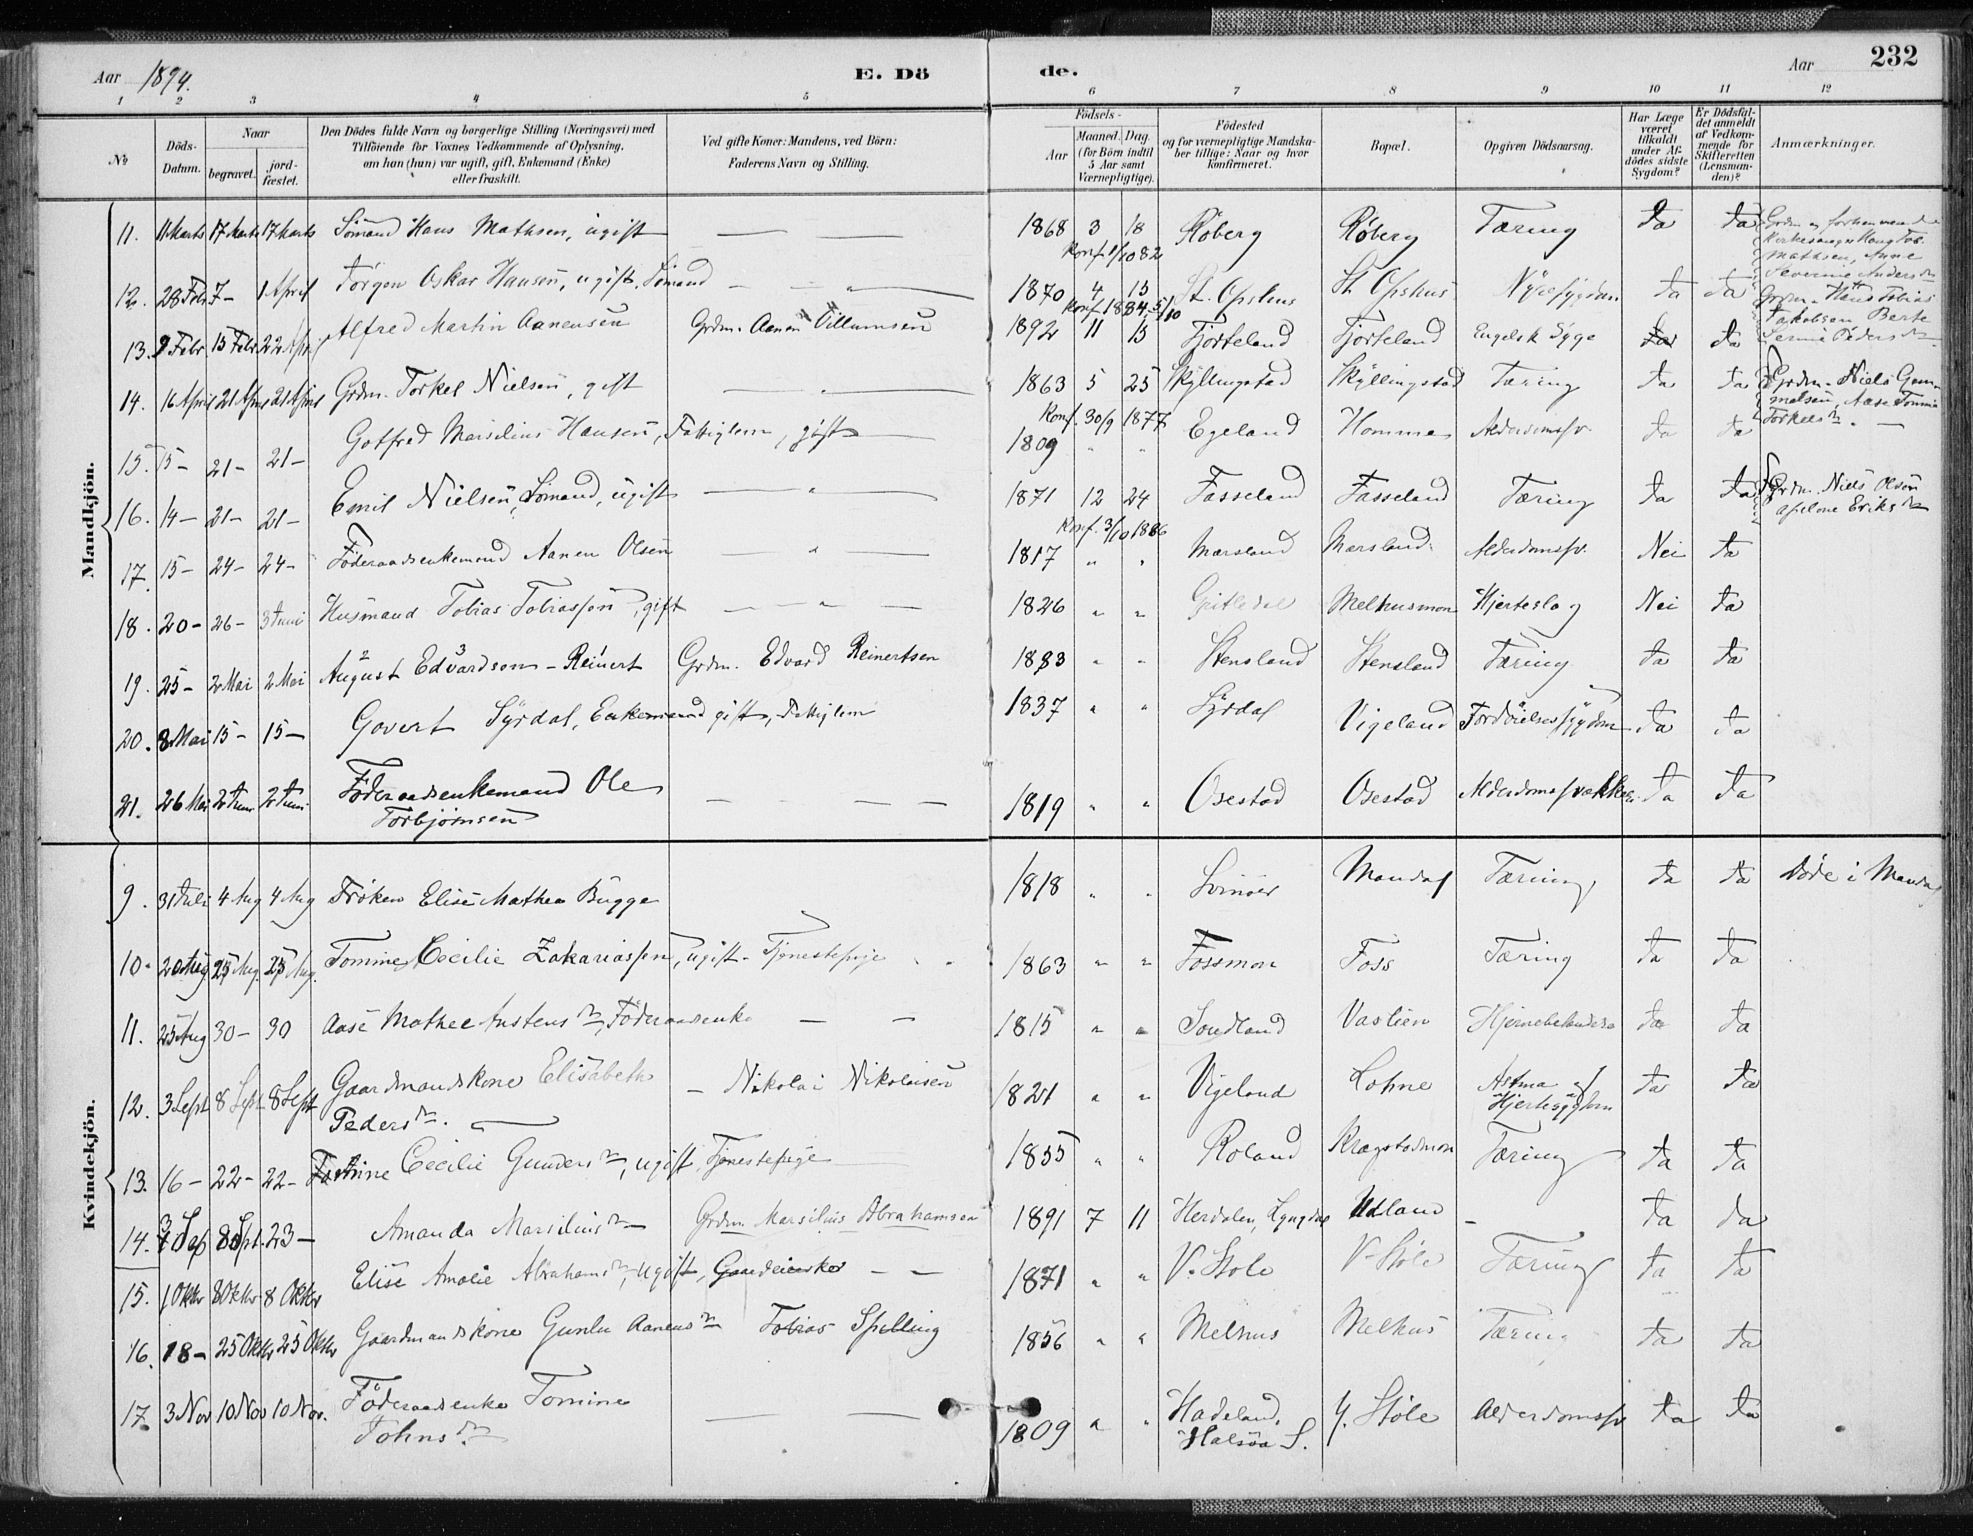 Aar 1894.
E. Dö
de.
Aar
232
1 2 3 4 5 6 7 8 9 10 11 12
No
Döds-Datum.
Naar
begravet.
jord-fæstet.
Den Dödes fulde Navn og borgerlige Stilling (Næringsvei) med
Tilföiende for Voxnes Vedkommende af Oplysning,
om han (hun) var ugift, gift, Enkemand (Enke)
eller fraskilt.
Ved gifte Koner: Mandens, ved Börn:
Faderens Navn og Stilling.
Födsels-
Aar
Maaned.
Dag.
(for Börn indtil
5 Aar samt
Værnepligtige).
Födested
og for værnepligtige Mandska-
ber tillige: Naar og hvor
konfirmeret.
Bopæl.
Opgiven Dödsaarsag.
Har Læge
været
tilkaldt
under Af-
dödes sidste
Sygdom?
Er Dödsfal-
det anmeldt
af Vedkom-
mende for
Skifteretten
(Lensman-
den)?
Anmærkninger.
Mandkjön.
11. 11 Marts 17 Marts 17 Marts Sömand Hans Mathsen, ugift — — 1868 3 18 Röberg Röberg Tæring Ja Ja
Konf 1/10 82
12. 28 Febr 7 – 1 April Jörgen Oskar Hansen, ugift. Sömand — " — 1870 4 13 St. Opshus St. Opshus Ja Ja
Konf 1884 5/10
13. 9 Febr 15 Febr 22 April Alfred Martin Aanensen Grdm. Aanen Villumsen 1892 11 13 Fjorteland Fjorteland Engelsk Syge Ja Ja
14. 16 April 21 April 21 April Grdm. Torkel Nielsen, gift — " — 1863 5 25 Skyllingstad Skyllingstad Tæring Ja Ja Grdm. Niels
Konf. 30/9 1877
15. 15 – 21 – 21 – Gotfred Marselius Hansen, Fattiglem, gift 1809 " " Egeland Homme Alderdomssv. Ja Ja
16. 14 – 21 – 21 – Emil Nielsen, Sömand, ugift — " — 1871 12 24 Fasseland Fasseland Tæring Ja Ja Grdm. Niels Olsen
Konf. 3/10 1886
17. 15 – 24 – 24 – Föderaadsenkemand Aanen Olsen — " — 1817 " " Marsland Marsland Alderdomssv. Nei Ja
18. 20 – 26 – 3 Juni Husmand Tobias Tobiassen, gift — " — 1826 " " Melhusmon Hjerteslag Nei Ja
19. 25 – 2 Mai 2 Mai August Edvardsen – Reinert Grdm. Edvard Reinertsen 1883 " " Stensland Stensland Tæring Ja Ja
20. 8 Mai 15 – 15 – Govert Syrdal, Enkemand gift, Fattiglem 1837 " " Syrdal Vigeland Fordöielsessygdom Ja Ja
21. 26 Mai 2 Juni 2 Juni Föderaadsenkemand Ole
Torbjörnsen — — — 1819 " " Osestad Osestad Ja Ja
Kvindekjön.
9. 31 Juli 4 Aug 4 Aug Fröken Elise Mathea Bugge 1818 " " Svinöer Mandal Tæring Ja Ja Döde i Mandal
10. 20 Aug 25 Aug. 25 Aug. Tomine Cecilie Zakariassen, ugift – Tjenestepige 1863 " " Fossmon Foss Tæring Ja Ja
11. 25 Aug 30 – 30 Aase Mathee Austens dr, Föderaadsenke — — 1815 " " Vaslien Ja Ja
12. 3 Sept 8 Sept 8 Sept Gaardmandskone Elisabeth – Nikolai Nikolaisen 1821 " " Vigeland Lohne Astma og
Peders dr. Hjertesygdom Ja Ja
13. 16 – 22 – 22 – Cecilie Gunders dr, ugift, Tjenestepige 1855 " " Roland Kragstadmon Tæring Ja Ja
14. 8 Spt. 23 – Amanda Marsilius dr Grdm. Marsilius Abrahamsen 1891 7 11 Herdalen, Lyngdal Udland – Ja Ja
15. 1 Oktbr 8 Oktbr 8 Oktbr Elise Amalie Abrahams dr, ugift, — — 1871 " " V. Stöle V. Stöle Tæring Ja Ja
16. 18 – 25 Oktbr 25 Oktbr Gaardmandskone Gunlu Aanens dr Tobias Spilling 1856 " " Melhus Melhus Tæring Ja Ja
17. 3 Nov 10 Nov 10 Nov. Föderaadsenke Tomine — — 1809 " " Hadeland, Y. Stöle Alderdomssv Ja Ja
Johns dr. Halsöa S.